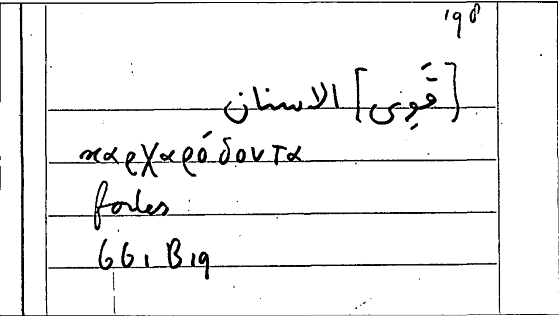 198
[قوى] الاسنان
καρχαρόδοντα
fortes
661 B19